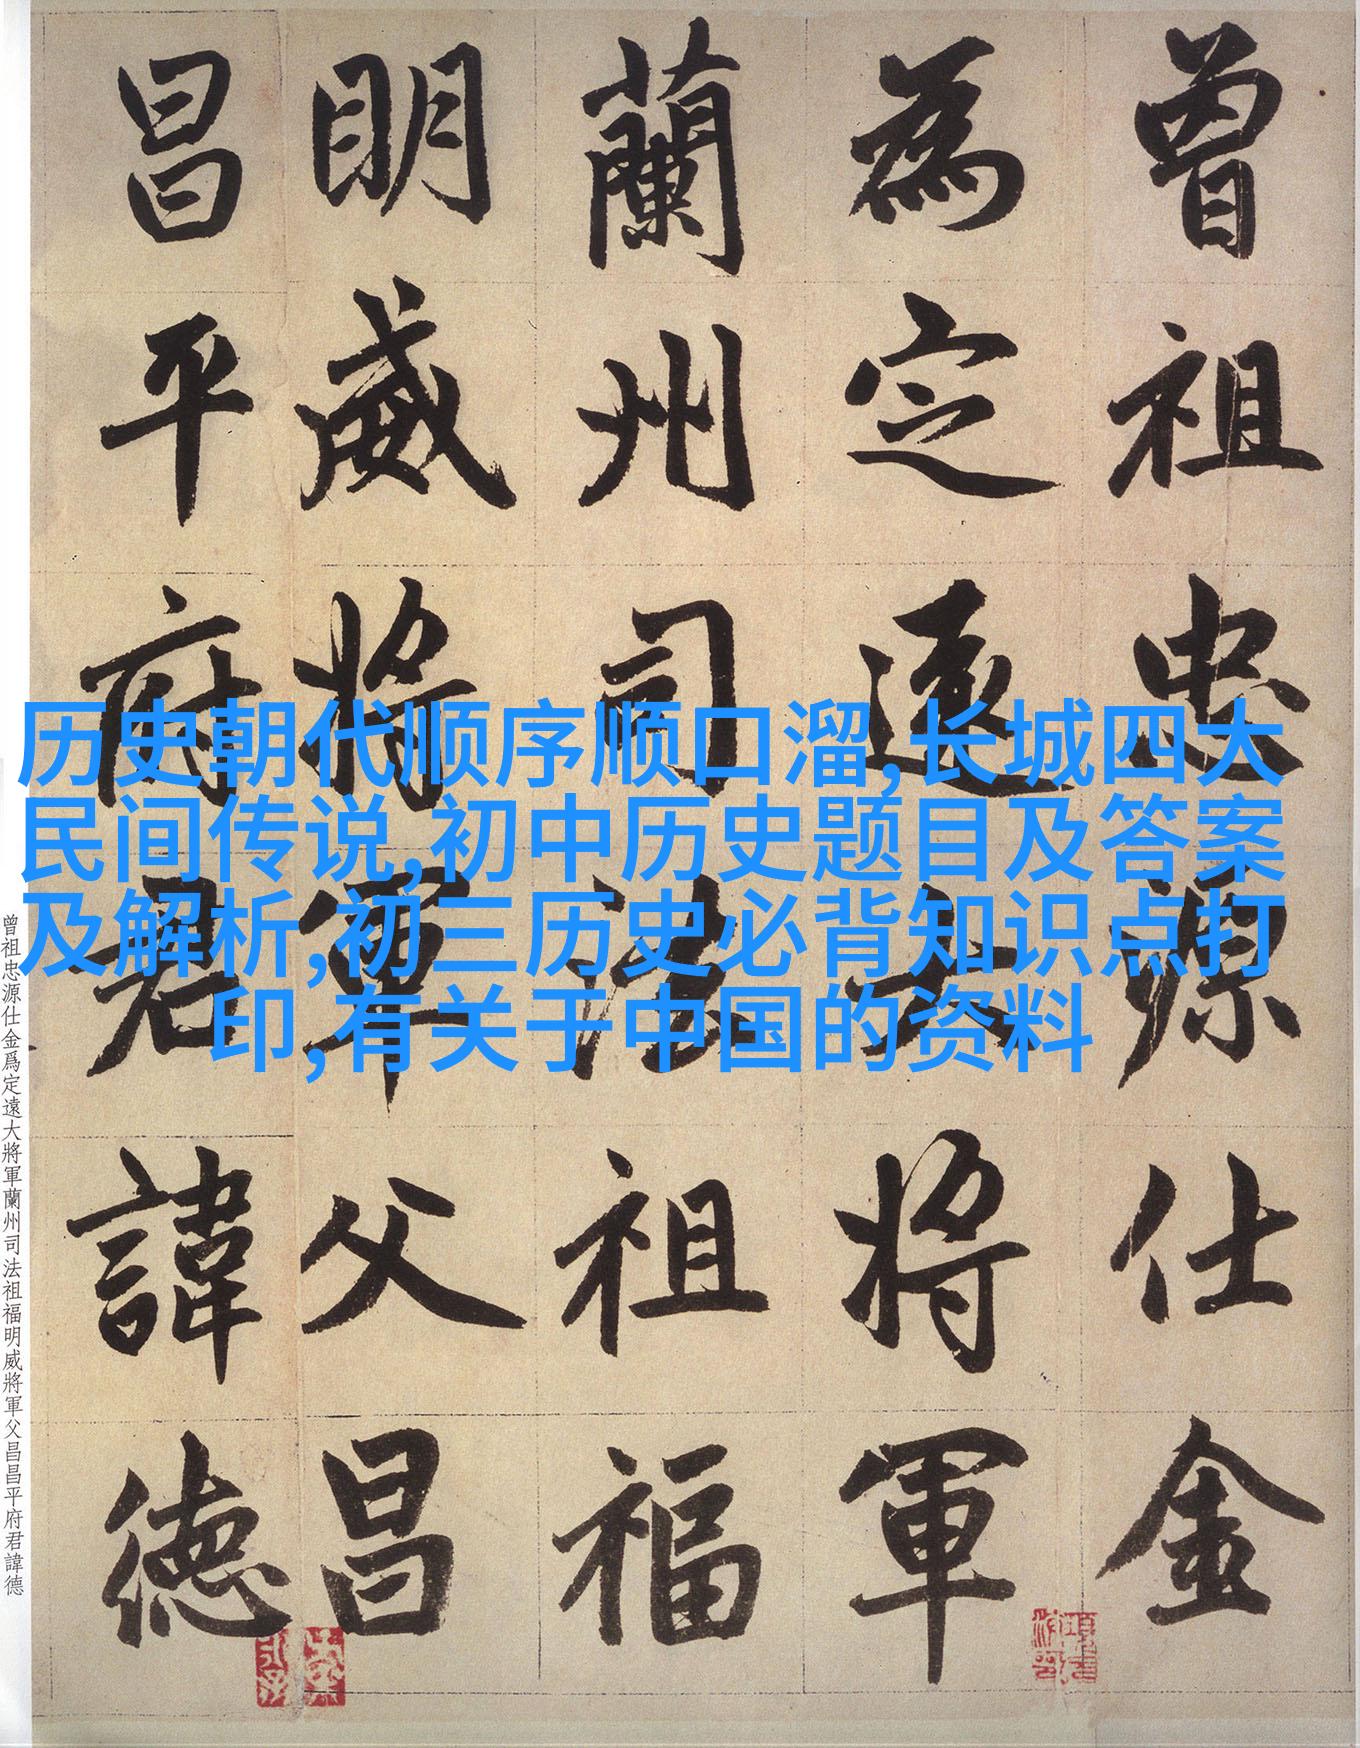 曾祖忠源仕金
為定遠大將軍
蘭州司法祖福
明威將軍父昌
昌平府君諱德
历史朝代顺序顺口溜,长城四大
民间传说,初中历史题目及答案
及解析,初三历史必背知识点打
印,有关于中国的资料
曾祖忠源仕金爲定遠大將軍蘭州司法祖福明威將軍父昌昌平府君諱德